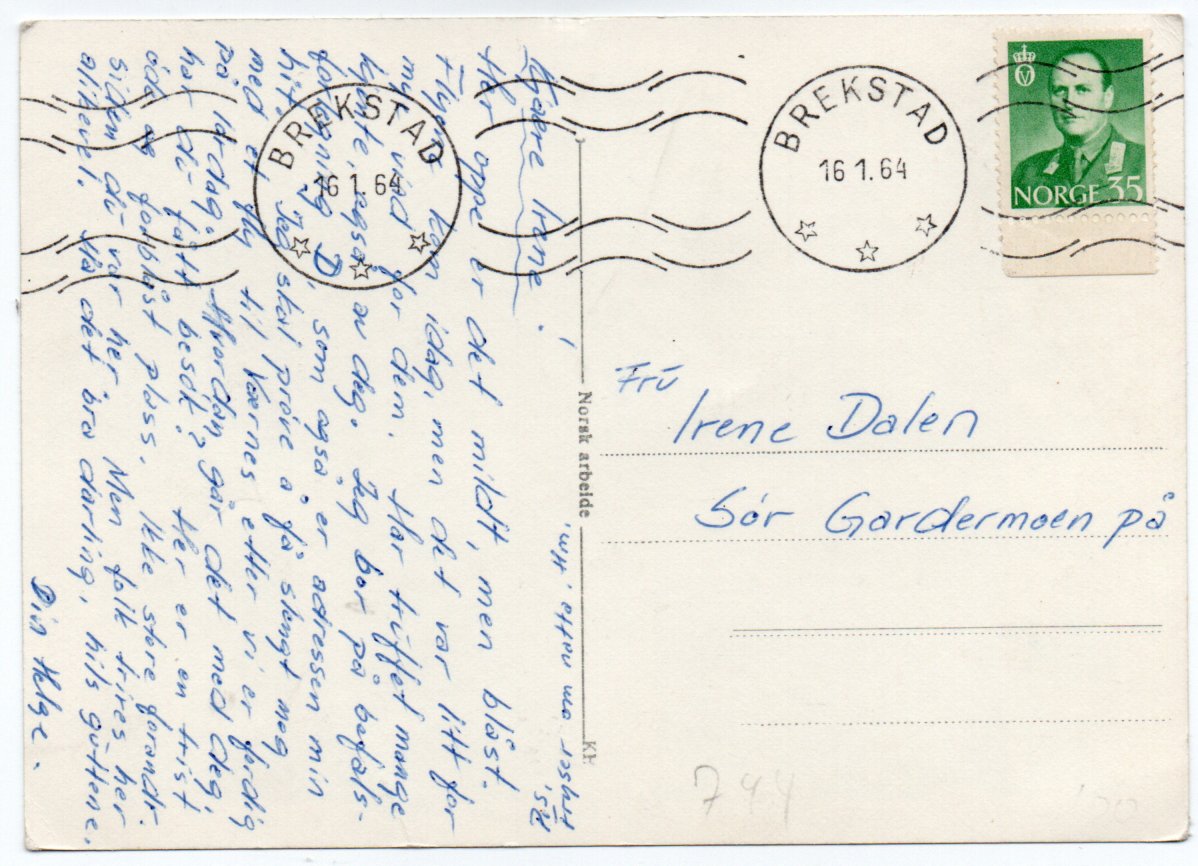 Kjære Irene!
Her oppe er det mildt, men blåst.
Flyene kom idag, men det var litt for
mye vind for dem. Har truffet mange
kjente, også av deg. Jeg bor på befals-
forlegning D, som også er adressen min
hit. Jeg skal prøve å få slengt meg
med et fly til Værnes etter vi er ferdig
på lørdag. Hvordan går det med deg,
har du fått besök? Her er en trist
öde og forblåst plass. Ikke större forandr.
siden du var her. Men folk trives her
alikevel. Ha det bra darling, hils guttene.
Din Helge.
P.S.
Fryser om natta, 'Hm'.
BREKSTAD
16 1. 64
BREKSTAD
16 1. 64
NORGE 35
Norsk arbeide
KH
Frü
Irene Dalen
Sör Gardermoen på
744